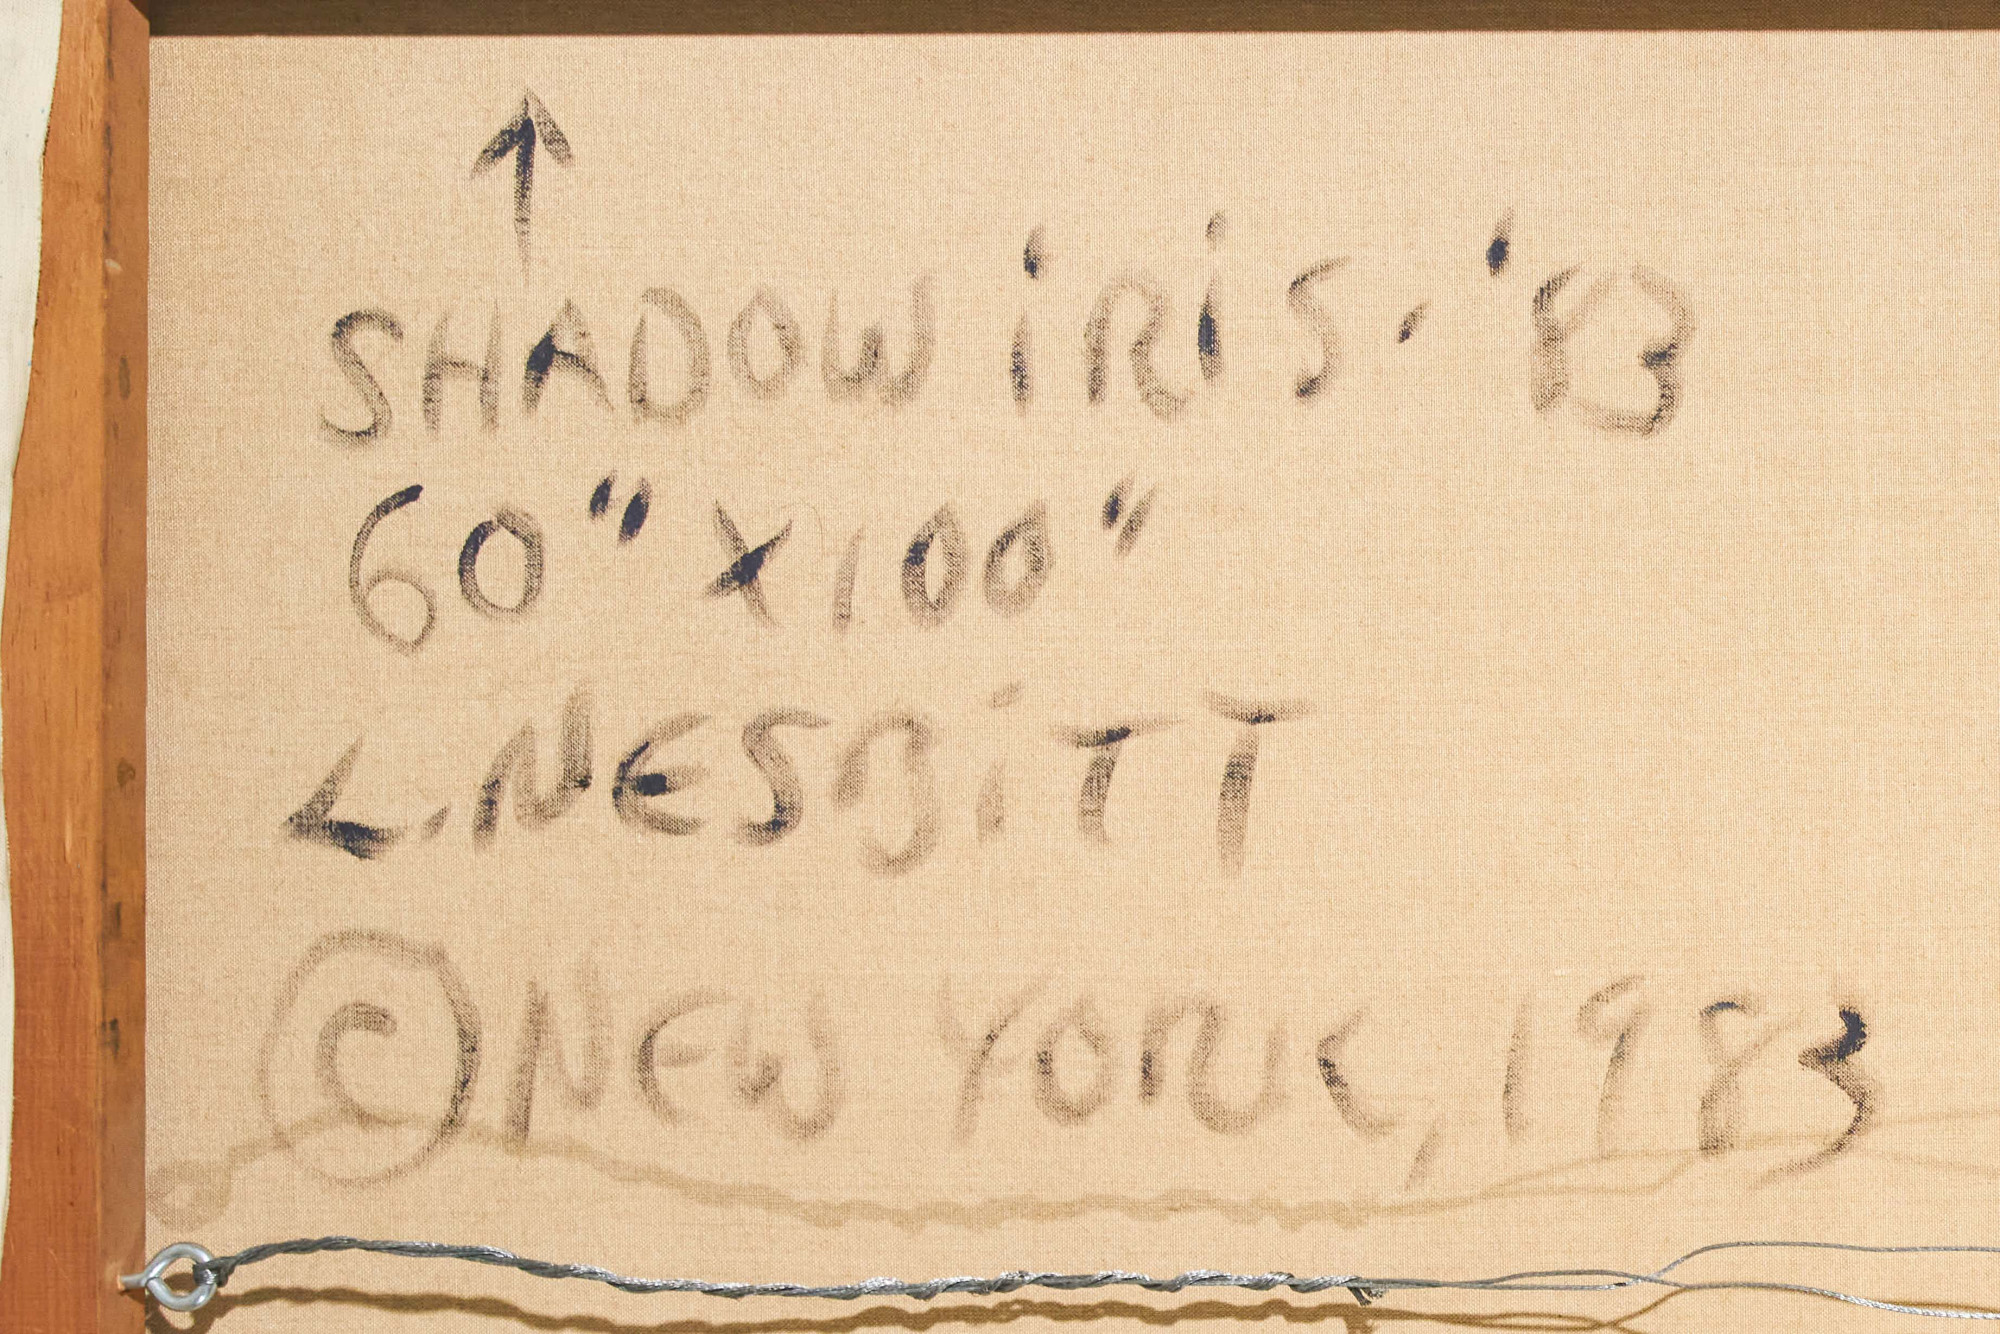 ↑
SHADOW iRiS. '83
60" X 100"
L. NESBiTT
© NEW YORK, 1983